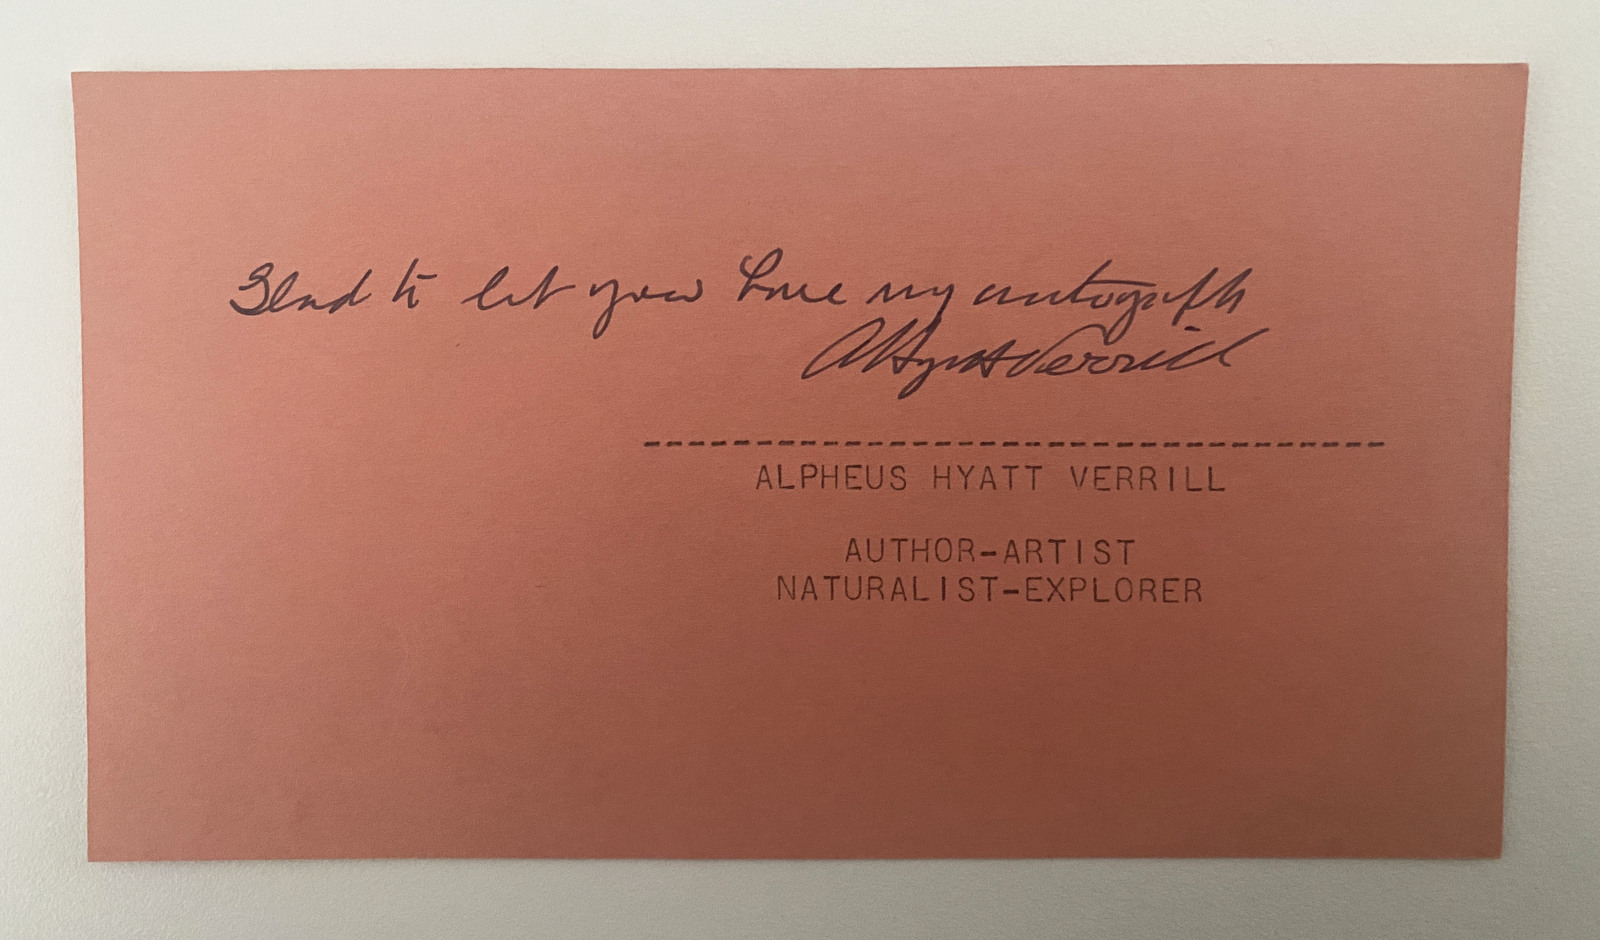 Glad to let you have my autograph
A Hyatt Verrill
---------------------------------
ALPHEUS HYATT VERRILL
AUTHOR-ARTIST
NATURALIST-EXPLORER